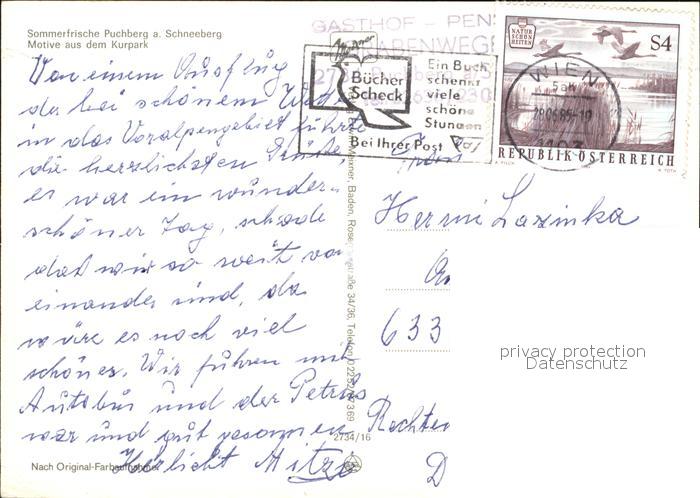 Sommerfrische Puchberg a. Schneeberg
Motive aus dem Kurpark
Von einem Ausflug
der bei schönem Wetter
in das Voralpengebiet führte
die herzlichsten Grüße,
es war ein wunder-
schöner Tag, schade
daß wir so weit von
einander sind, da
wäre es noch viel
schöner. Wir fuhren mit
Autobus und der Petrus
war uns gut gesonnen
Herzlichst Mitzi
Nach Original-Farbaufnahme
2734/16
GASTHOF - PEN
Bücher
Scheck
Ein Buch
schenkt
viele
schöne
Stunden
Bei Ihrer Post
NATUR
SCHÖN
HEITEN
S4
WIEN
1103
REPUBLIK ÖSTERREICH
Baden,
34/36, Telefon
Frau
Hermi Lazinka
633
D
privacy protection
Datenschutz